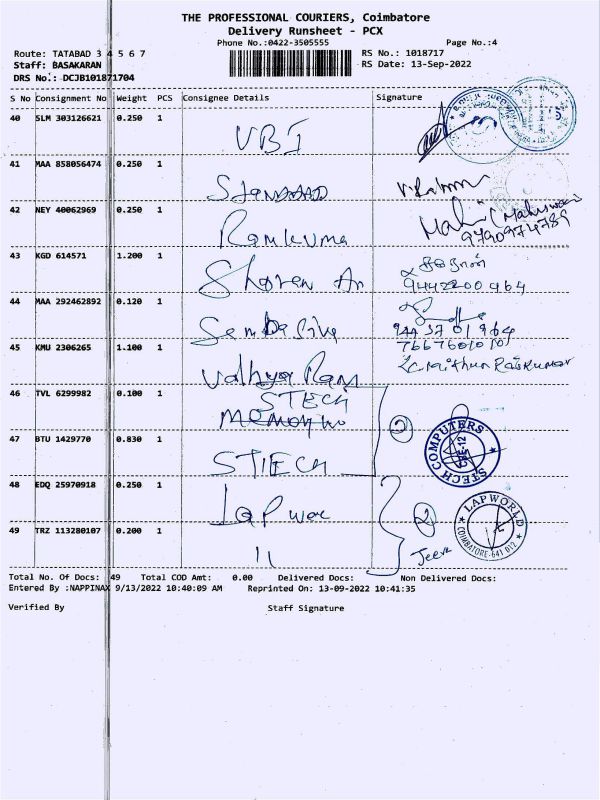 THE PROFESSIONAL COURIERS, Coimbatore
Delivery Runsheet - PCX
Phone No.:0422-3505555
Page No.:4
Route: TATABAD 3 4 5 6 7
RS No.: 1018717
Staff: BASAKARAN
RS Date: 13-Sep-2022
DRS No.: DCJB101871704
S No Consignment No Weight PCS Consignee Details Signature
40 SLM 303126621 0.250 1
UBI
41 MAA 858056474 0.250 1
42 NEY 40062969 0.250 1
Ramkuma
9790974789
43 KGD 614571 1.200 1
Sharen An
9442200464
44 MAA 292462892 0.120 1
Sambasiva
944 37 01 964
45 KMU 2306265 1.100 1
7667601010
46 TVL 6299982 0.100 1
STECH
2
47 BTU 1429770 0.830 1
STECH COMPUTERS
CBE-12
48 EDQ 25970918 0.250 1
Lap
2
LAP WORLD
COIMBATORE-641 012
49 TRZ 113280107 0.200 1
11
Jeeva
Total No. Of Docs: 49 Total COD Amt: 0.00 Delivered Docs: Non Delivered Docs:
Entered By :NAPPINAX 9/13/2022 10:40:09 AM Reprinted On: 13-09-2022 10:41:35
Verified By Staff Signature